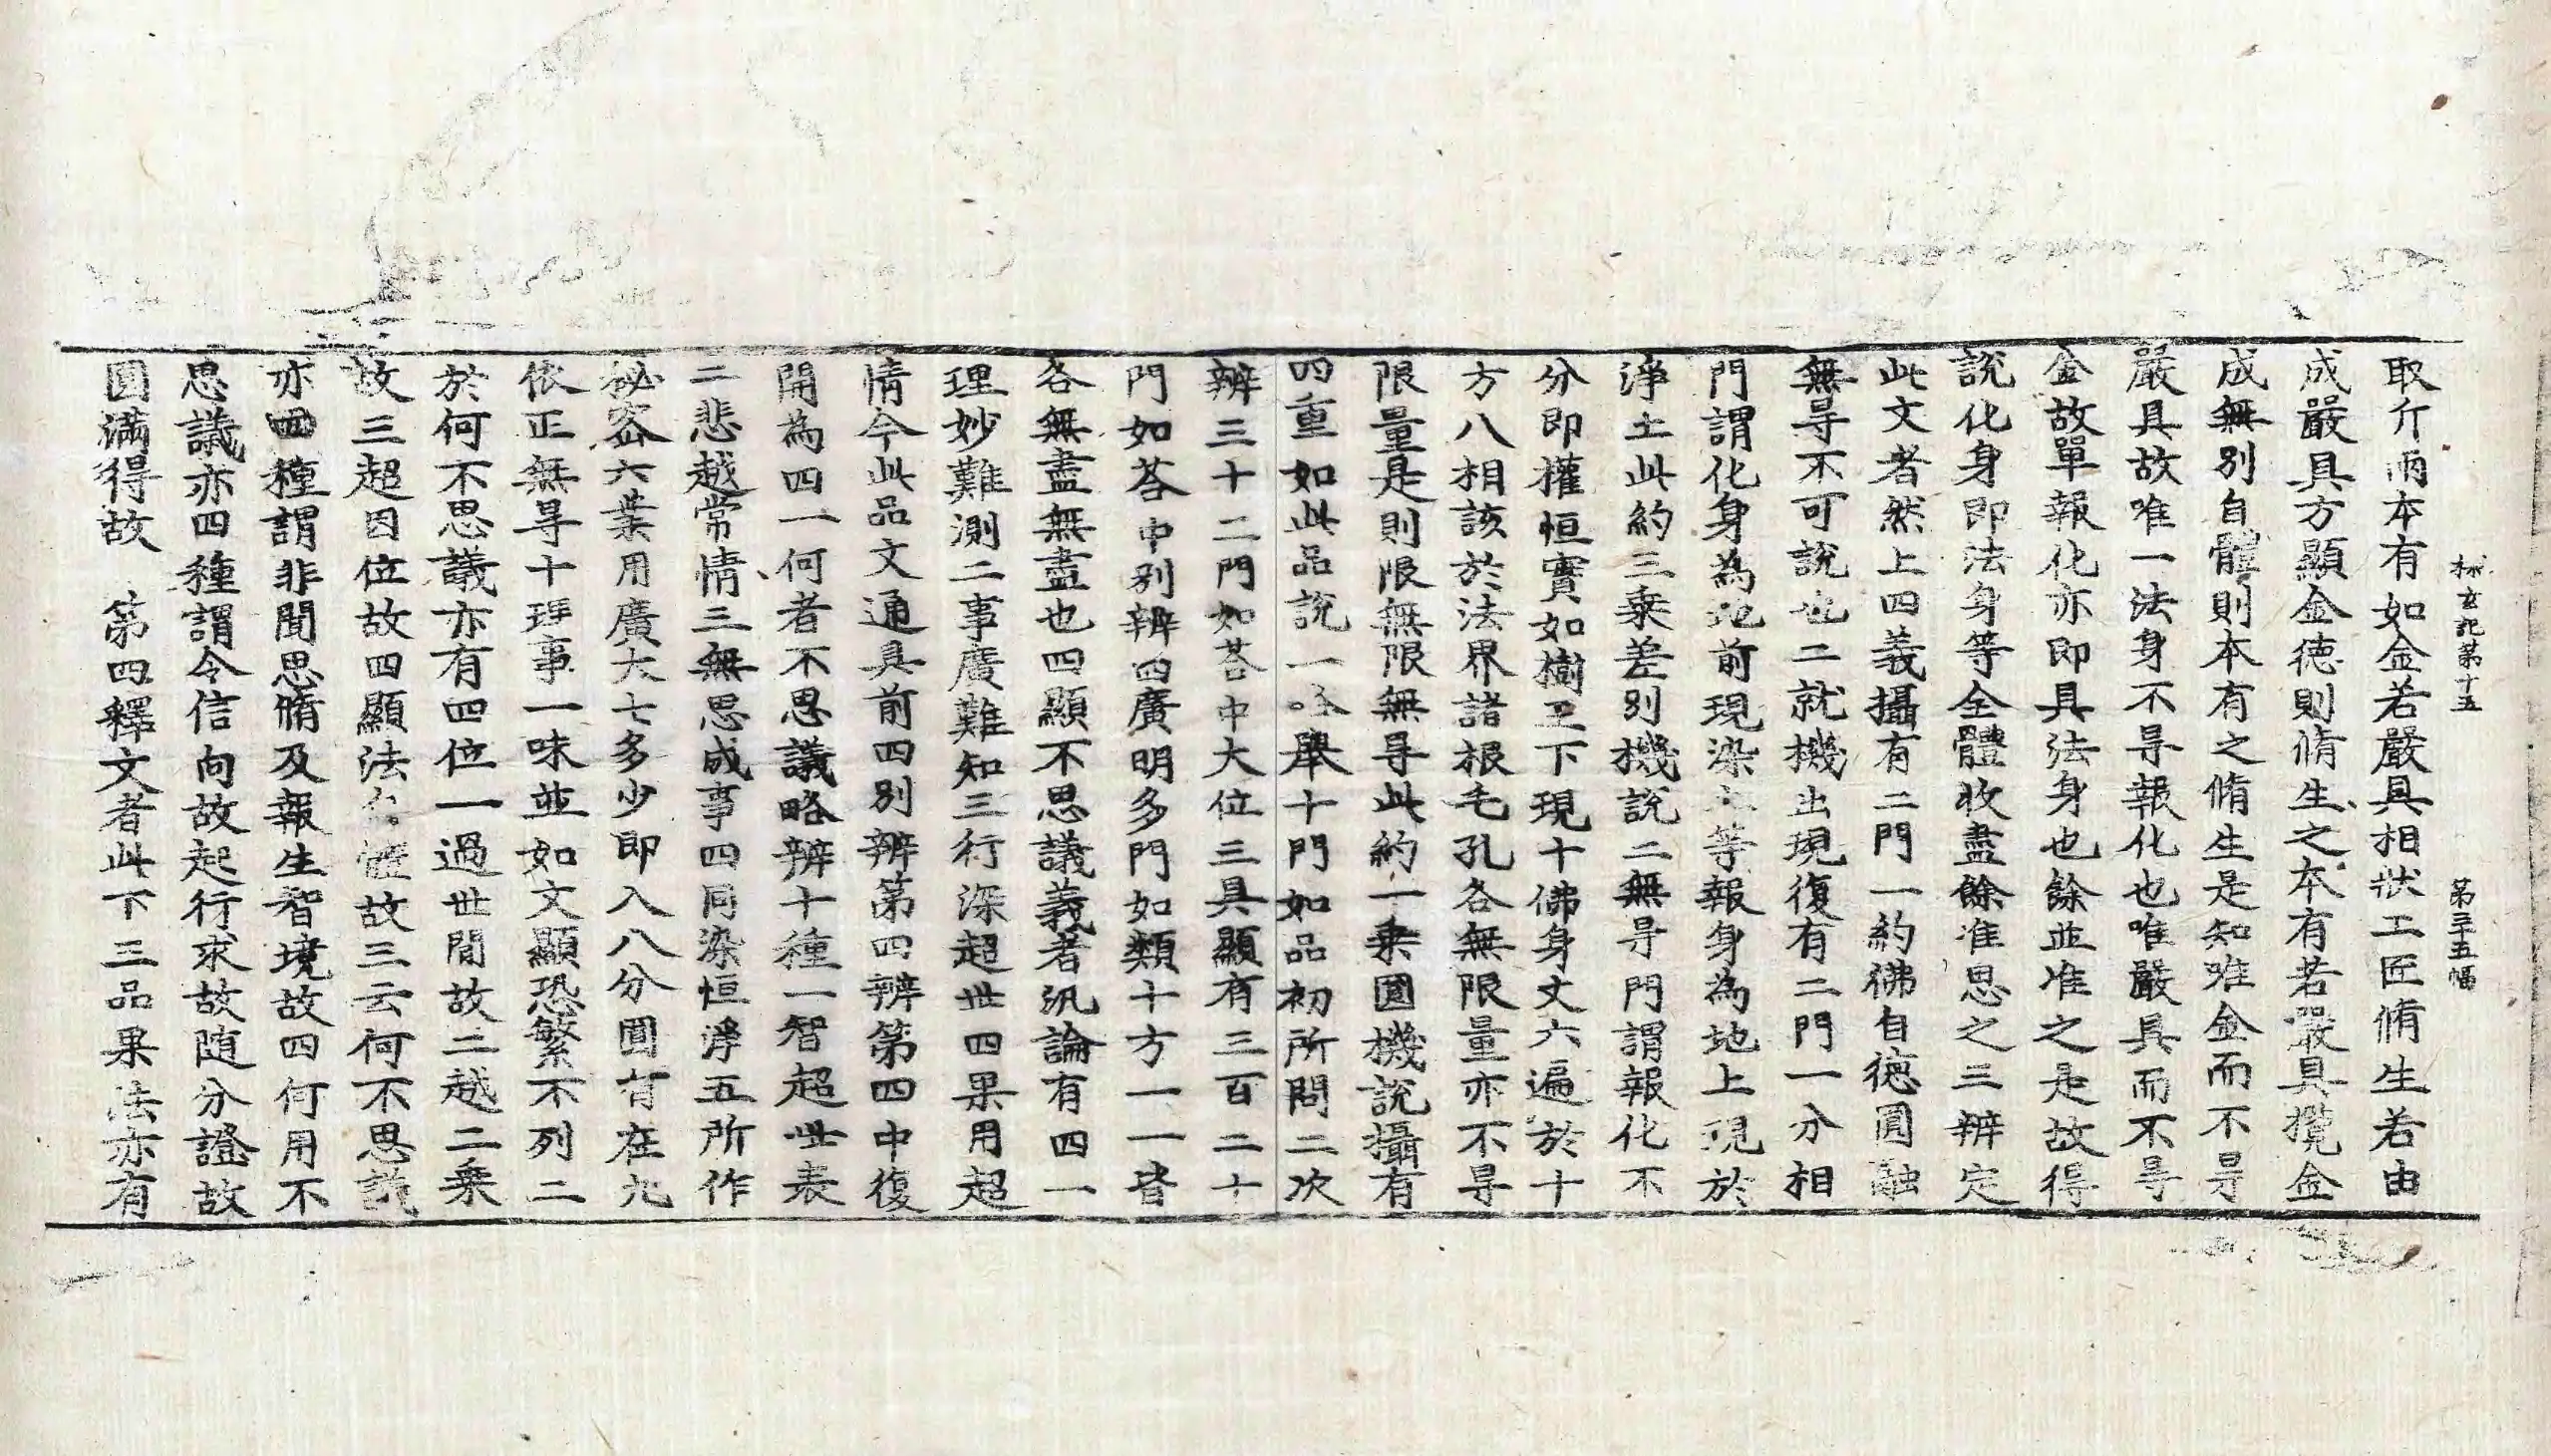 探玄記第十五　第三十五幅
取亦兩本有如金若嚴具相狀工匠脩生若由
成嚴具方顯金德則脩生之本有若嚴具攬金
成無別自體則本有之脩生是知唯金而不㝵
嚴具故唯一法身不㝵報化也唯嚴具而不㝵
金故單報化亦即具法身也餘並准之是故得
說化身即法身等全體收盡餘准思之三辨定
此文者然上四義攝有二門一約佛自德圓融
無㝵不可說也二就機出現復有二門一分相
門謂化身為地前現染土等報身為地上現於
淨土此約三乘差別機說二無㝵門謂報化不
分即權恒實如樹王下現十佛身丈六遍於十
方八相該於法界諸根毛孔各無限量亦不㝵
限量是則限無限無㝵此約一乘圓機說攝有
四重如此品說一略舉十門如品初所問二次
辨三十二門如荅中大位三具顯有三百二十
門如荅中別辨四廣明多門如類十方一一皆
各無盡無盡也四顯不思議義者汎論有四一
理妙難測二事廣難知三行深超世四果用超
情今此品文通具前四別辨第四辨第四中復
開為四一何者不思議略辨十種一智超世表
二悲越常情三無思成事四同染恒淨五所作
祕密六業用廣大七多少即入八分圓皆在九
依正無㝵十理事一味並如文顯恐繁不列二
於何不思議亦有四位一過世閒故二越二乘
故三超因位故四顯法自體故三云何不思議
亦四種謂非聞思脩及報生智境故四何用不
思議亦四種謂令信向故起行求故随分證故
圓滿得故　第四釋文者此下三品果法亦有